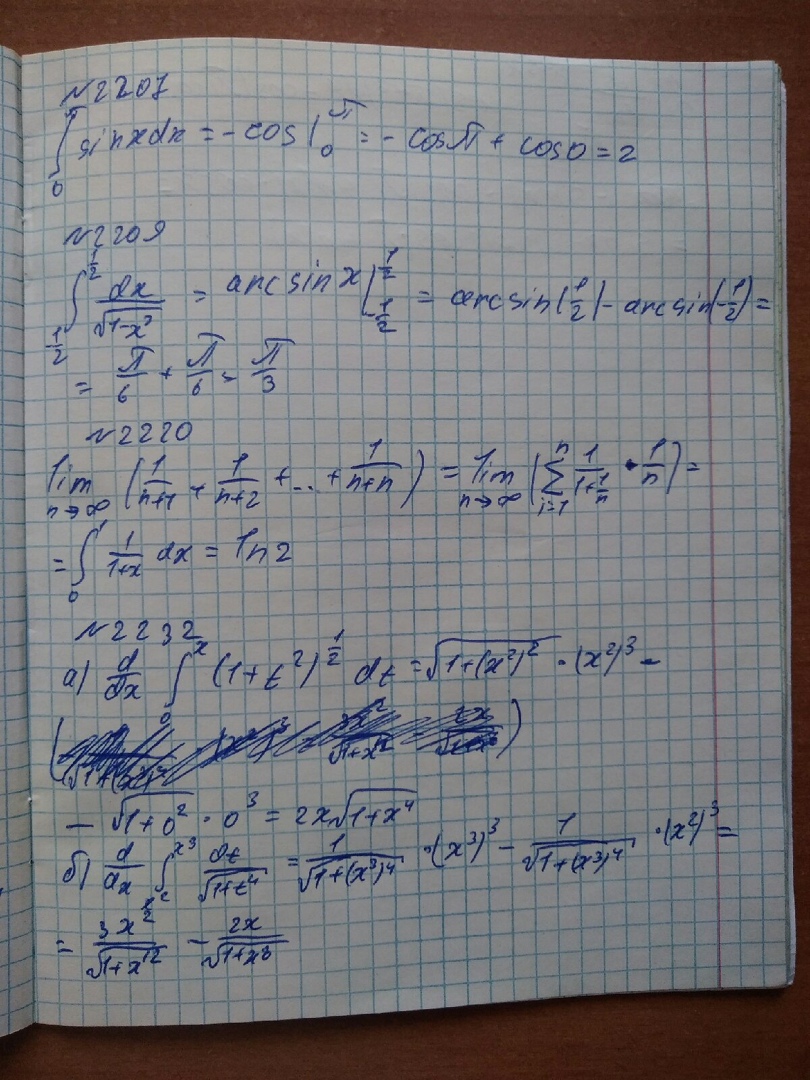 №2207
∫₀^π sinxdx = -cos|₀^π = -cosπ + cos0 = 2
№2209
∫_{1/2}^{1/2} dx/√(1-x²) = arcsinx|_{-1/2}^{1/2} = arcsin(1/2) - arcsin(-1/2) =
= π/6 + π/6 = π/3
№2220
lim_{n→∞} (1/(n+1) + 1/(n+2) + ... + 1/(n+n)) = lim_{n→∞} (∑_{i=1}^{n} 1/(1+1/n) · 1/n) =
= ∫₀¹ 1/(1+x) dx = ln2
№2232
а) d/dx ∫₀^x (1+t²)^{1/2} dt = √(1+(x²)²) · (x²)³ -
- √(1+0²) · 0³ = 2x√(1+x⁴)
б) d/dx ∫_{x²}^{x³} dt/√(1+t⁴) = 1/√(1+(x³)⁴) · (x³)³ - 1/√(1+(x³)⁴) · (x²)³ =
= 3x²/√(1+x¹²) - 2x/√(1+x⁸)